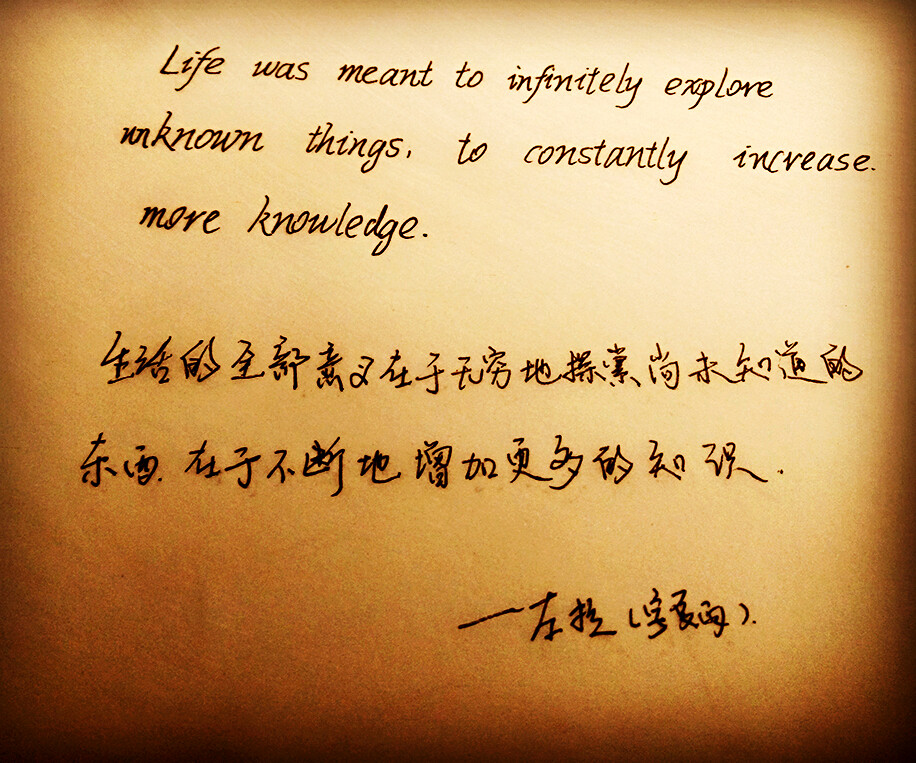 Life was meant to infinitely explore
unknown things, to constantly increase.
more knowledge.
生活的全部意义在于无穷地探索尚未知道的
东西.在于不断地增加更多的知识.
—左拉(